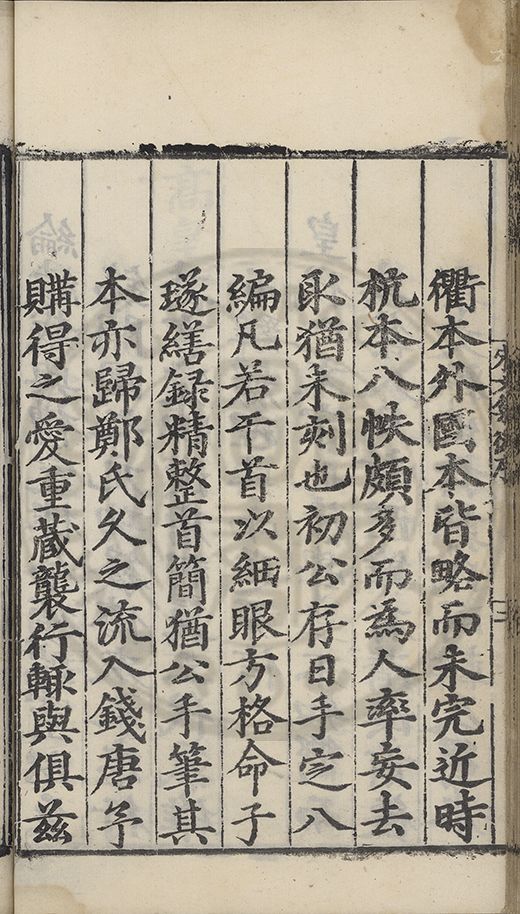 衢本外國本皆略而未完近時
杭本八帙頗多而為人率妄去
取猶未刻也初公存日手定八
編凡若干首以細眼方格命子
璲繕録精整首簡猶公手筆其
本亦歸鄭氏久之流入錢唐予
購得之愛重蔵襲行輙與俱茲